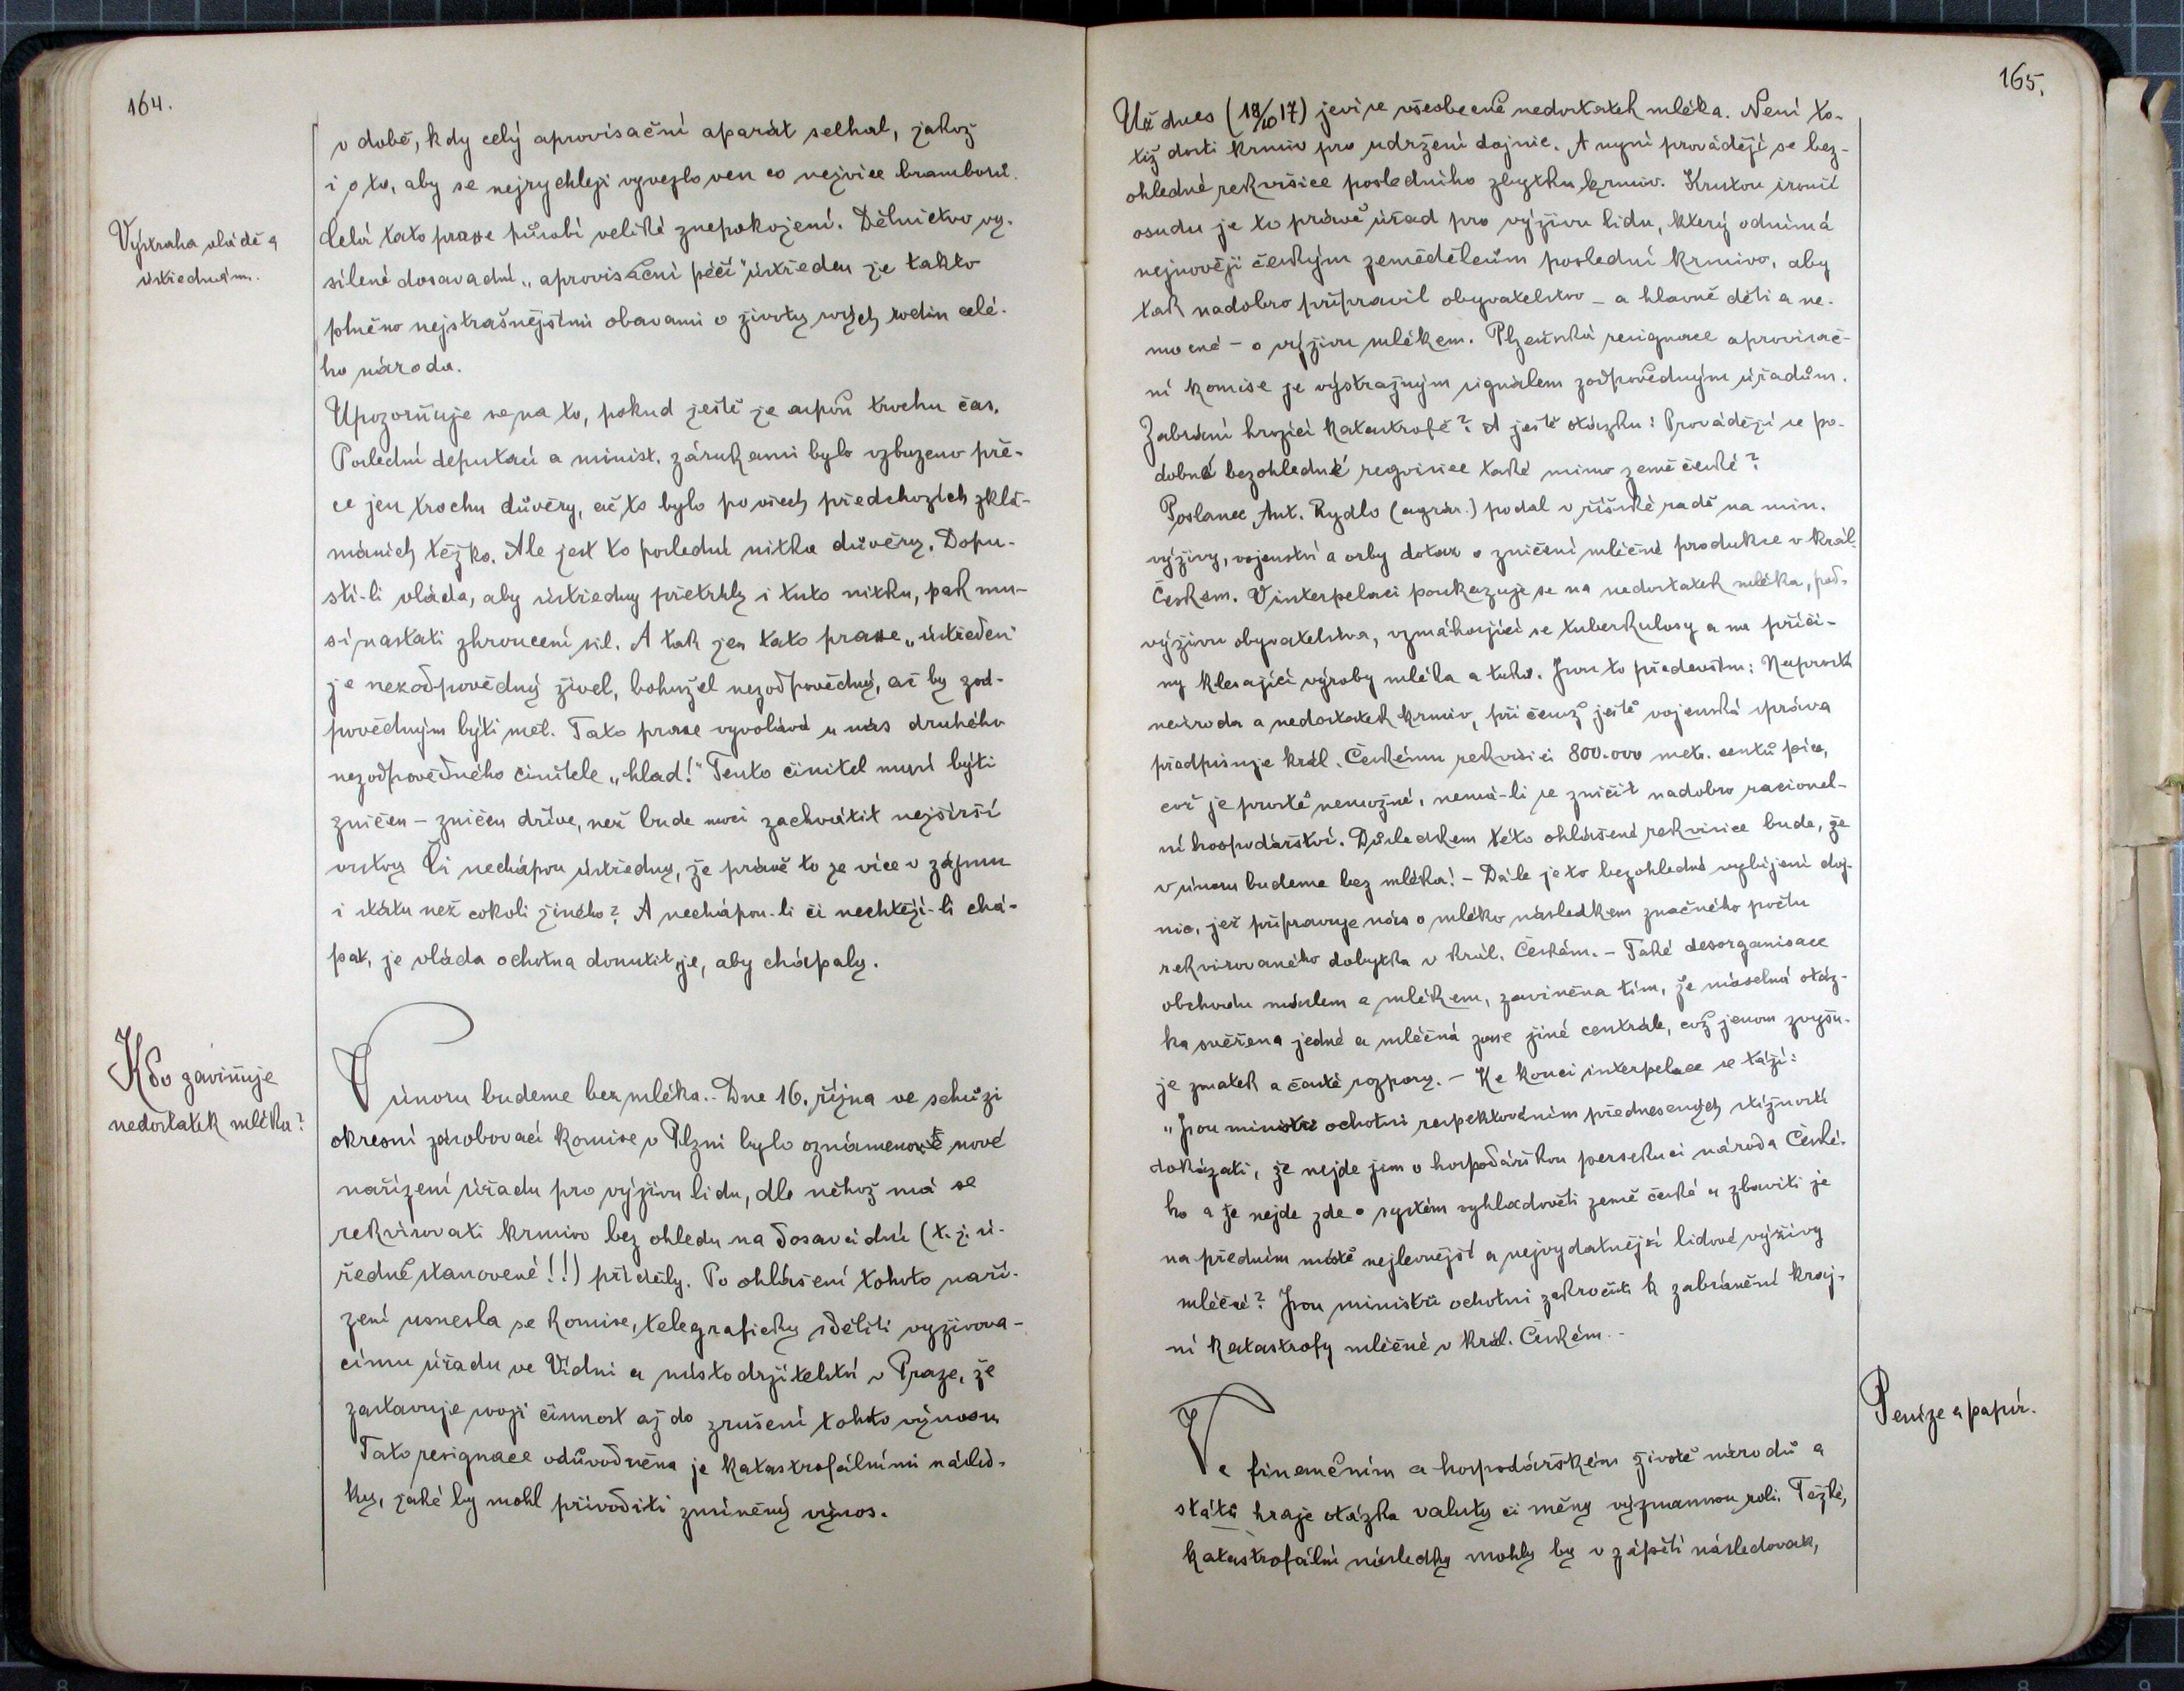 164.
v době, kdy celý aprovisační aparát selhal, jakož
i o to, aby se nejrychleji vyvezlo ven co nejvíce bramborů.
Výstraha vládě a
ústřednám.
Celá tato praxe působí veliké znepokojení. Dělnictvo vy-
sílené dosavadní „aprovisační péčí" ústředen je takto
plněno nejstrašnějšími obavami o životy svých rodin celé-
ho národa.
Upozorňuje se na to, pokud ještě je aspoň trochu čas.
Poslední deputací a minist. zárukami bylo vzbuzeno pře-
ce jen trochu důvěry, ač to bylo po všech předchozích zkla-
máních těžko. Ale jest to poslední nitka důvěry. Dopu-
stí-li vláda, aby ústředny přetrhly i tuto nitku, pak mu-
sí nastati zhroucení sil. A tak jen tato praxe „ústředen"
je nezodpovědný živel, bohužel nezodpovědný, ač by zod-
povědným býti měl. Tato praxe vyvolává u nás druhého
nezodpovědného činitele „hlad!" Tento činitel musí býti
zničen – zničen dříve, než bude moci zachvátit nejširší
vrstvy Či nechápou ústředny, že právě to je více v zájmu
i státu než cokoli jiného? A nechápou-li či nechtějí-li chá-
pat, je vláda ochotna donutit je, aby chápaly.
Kdo zaviňuje
nedostatek mléka?
V únoru budeme bez mléka.- Dne 16. října ve schůzi
okresní zásobovací komise v Plzni bylo oznámeno nové
nařízení úřadu pro výživu lidu, dle něhož má se
rekvirovati krmivo bez ohledu na dosavadní (t. j. ú-
ředně stanovené!!) příděly. Po ohlášení tohoto naří-
zení usnesla se komise, telegraficky sděliti vyživova-
címu úřadu ve Vídni a místodržitelství v Praze, že
zastavuje svoji činnost až do zrušení tohoto výnosu
Tato resignace odůvodněna je katastrofálními násled-
ky, jaké by mohl přivoditi zmíněný výnos.
165.
Už dnes (18/10 17) jeví se všeobecně nedostatek mléka. Není to-
tiž dosti krmiv pro udržení dojnic. A nyní provádějí se bez-
ohledné rekvisice posledního zbytku krmiv. Krutou ironií
osudu je to právě úřad pro výživu lidu, který odnímá
nejnověji českým zemědělcům poslední krmivo, aby
tak nadobro připravil obyvatelstvo – a hlavně děti a ne-
mocné – o výživu mlékem. Plzeňská resignace aprovisač-
ní komise je výstražným signálem zodpovědným úřadům.
Zabrání hrozící katastrofě? A ještě otázku: Provádějí se po-
dobné bezohledné reqvisice také mimo země české?
Poslanec Ant. Rydlo (agrár.) podal v říšské radě na min.
výživy, vojenství a orby dotaz o zničení mléčné produkce v král.
Českém. V interpelaci poukazuje se na nedostatek mléka, pod-
výživu obyvatelstva, vzmáhající se tuberkulosy a na příči-
ny klesající výroby mléka a tuků. Jsou to především: Naprostá
neúroda a nedostatek krmiv, při čemž ještě vojenská správa
předpisuje král. Českému rekvisici 800.000 metr. centů píce,
což je prostě nemožné, nemá-li se zničit nadobro racionel-
ní hospodářství. Důsledkem této ohlášené rekvisice bude, že
v únoru budeme bez mléka! – Dále je to bezohledné vybíjení doj-
nic, jež připravuje nás o mléko následkem značného počtu
rekvirovaného dobytka v král. Českém. – Také desorganisace
obchodu máslem a mlékem, zaviněna tím, že máselná otáz-
ka svěřena jedné a mléčná zase jiné centrále, což jenom zvyšu-
je zmatek a časté rozpory. – Ke konci interpelace se táží:
„Jsou ministři ochotni respektováním přednesených stížností
dokázati, že nejde jim o hospodářskou persekuci národa České-
ho a že nejde zde o systém vyhladověti země české a zbaviti je
na předním místě nejlevnější a nejvydatnější lidové výživy
mléčné? Jsou ministři ochotni zakročiti k zabránění kraj-
ní katastrofy mléčné v král. Českém.-
Peníze a papír.
Ve finančním a hospodářském životě národů a
států hraje otázka valuty či měny významnou roli. Těžké,
katastrofální následky mohly by v zápětí následovat,